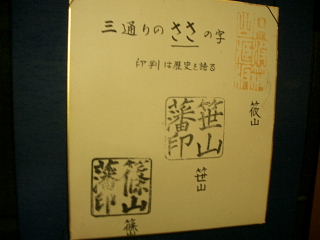 三通りのささの字
印判は歴史を語る
筱山
笹山藩印
笹山
篠山藩印
篠山